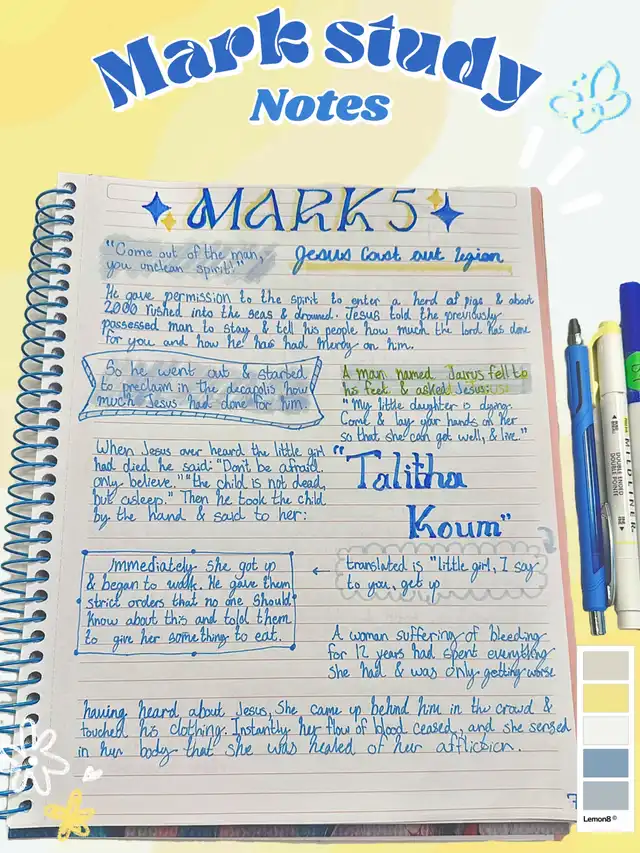 Mark study
Notes
MARK 5
"Come out of the man,
you unclean spirit!"
Jesus Cast out legion
He gave permission to the spirit to enter a herd of pigs & about
2000 rushed into the seas & drowned. Jesus told the previously
possessed man to stay & tell his people how much the lord has done
for you and how he has had Mercy on him.
So he went out & started
to preclaim in the decapolis how
much Jesus had done for him.
A man named Jairus fell to
his feet & asked Jesus:
"My little daughter is dying.
Come & lay your hands on her
so that she can get well, & live."
When Jesus over heard the little girl
had died he said: "Don't be afraid.
only believe." "the child is not dead,
but asleep." Then he took the child
by the hand & said to her:
"Talitha
Koum"
translated is "little girl, I say
to you, get up
Immediately she got up
& began to walk. He gave them
strict orders that no one should
Know about this and told them
to give her something to eat.
A woman suffering of bleeding
for 12 years had spent everything
she had & was only getting worse
having heard about Jesus, She came up behind him in the crowd &
touched his clothing. Instantly her flow of blood ceased, and she sensed
in her body that she was healed of her affliction.
DOUBLE SIDED
DOUBLE POINTE
Lemon8